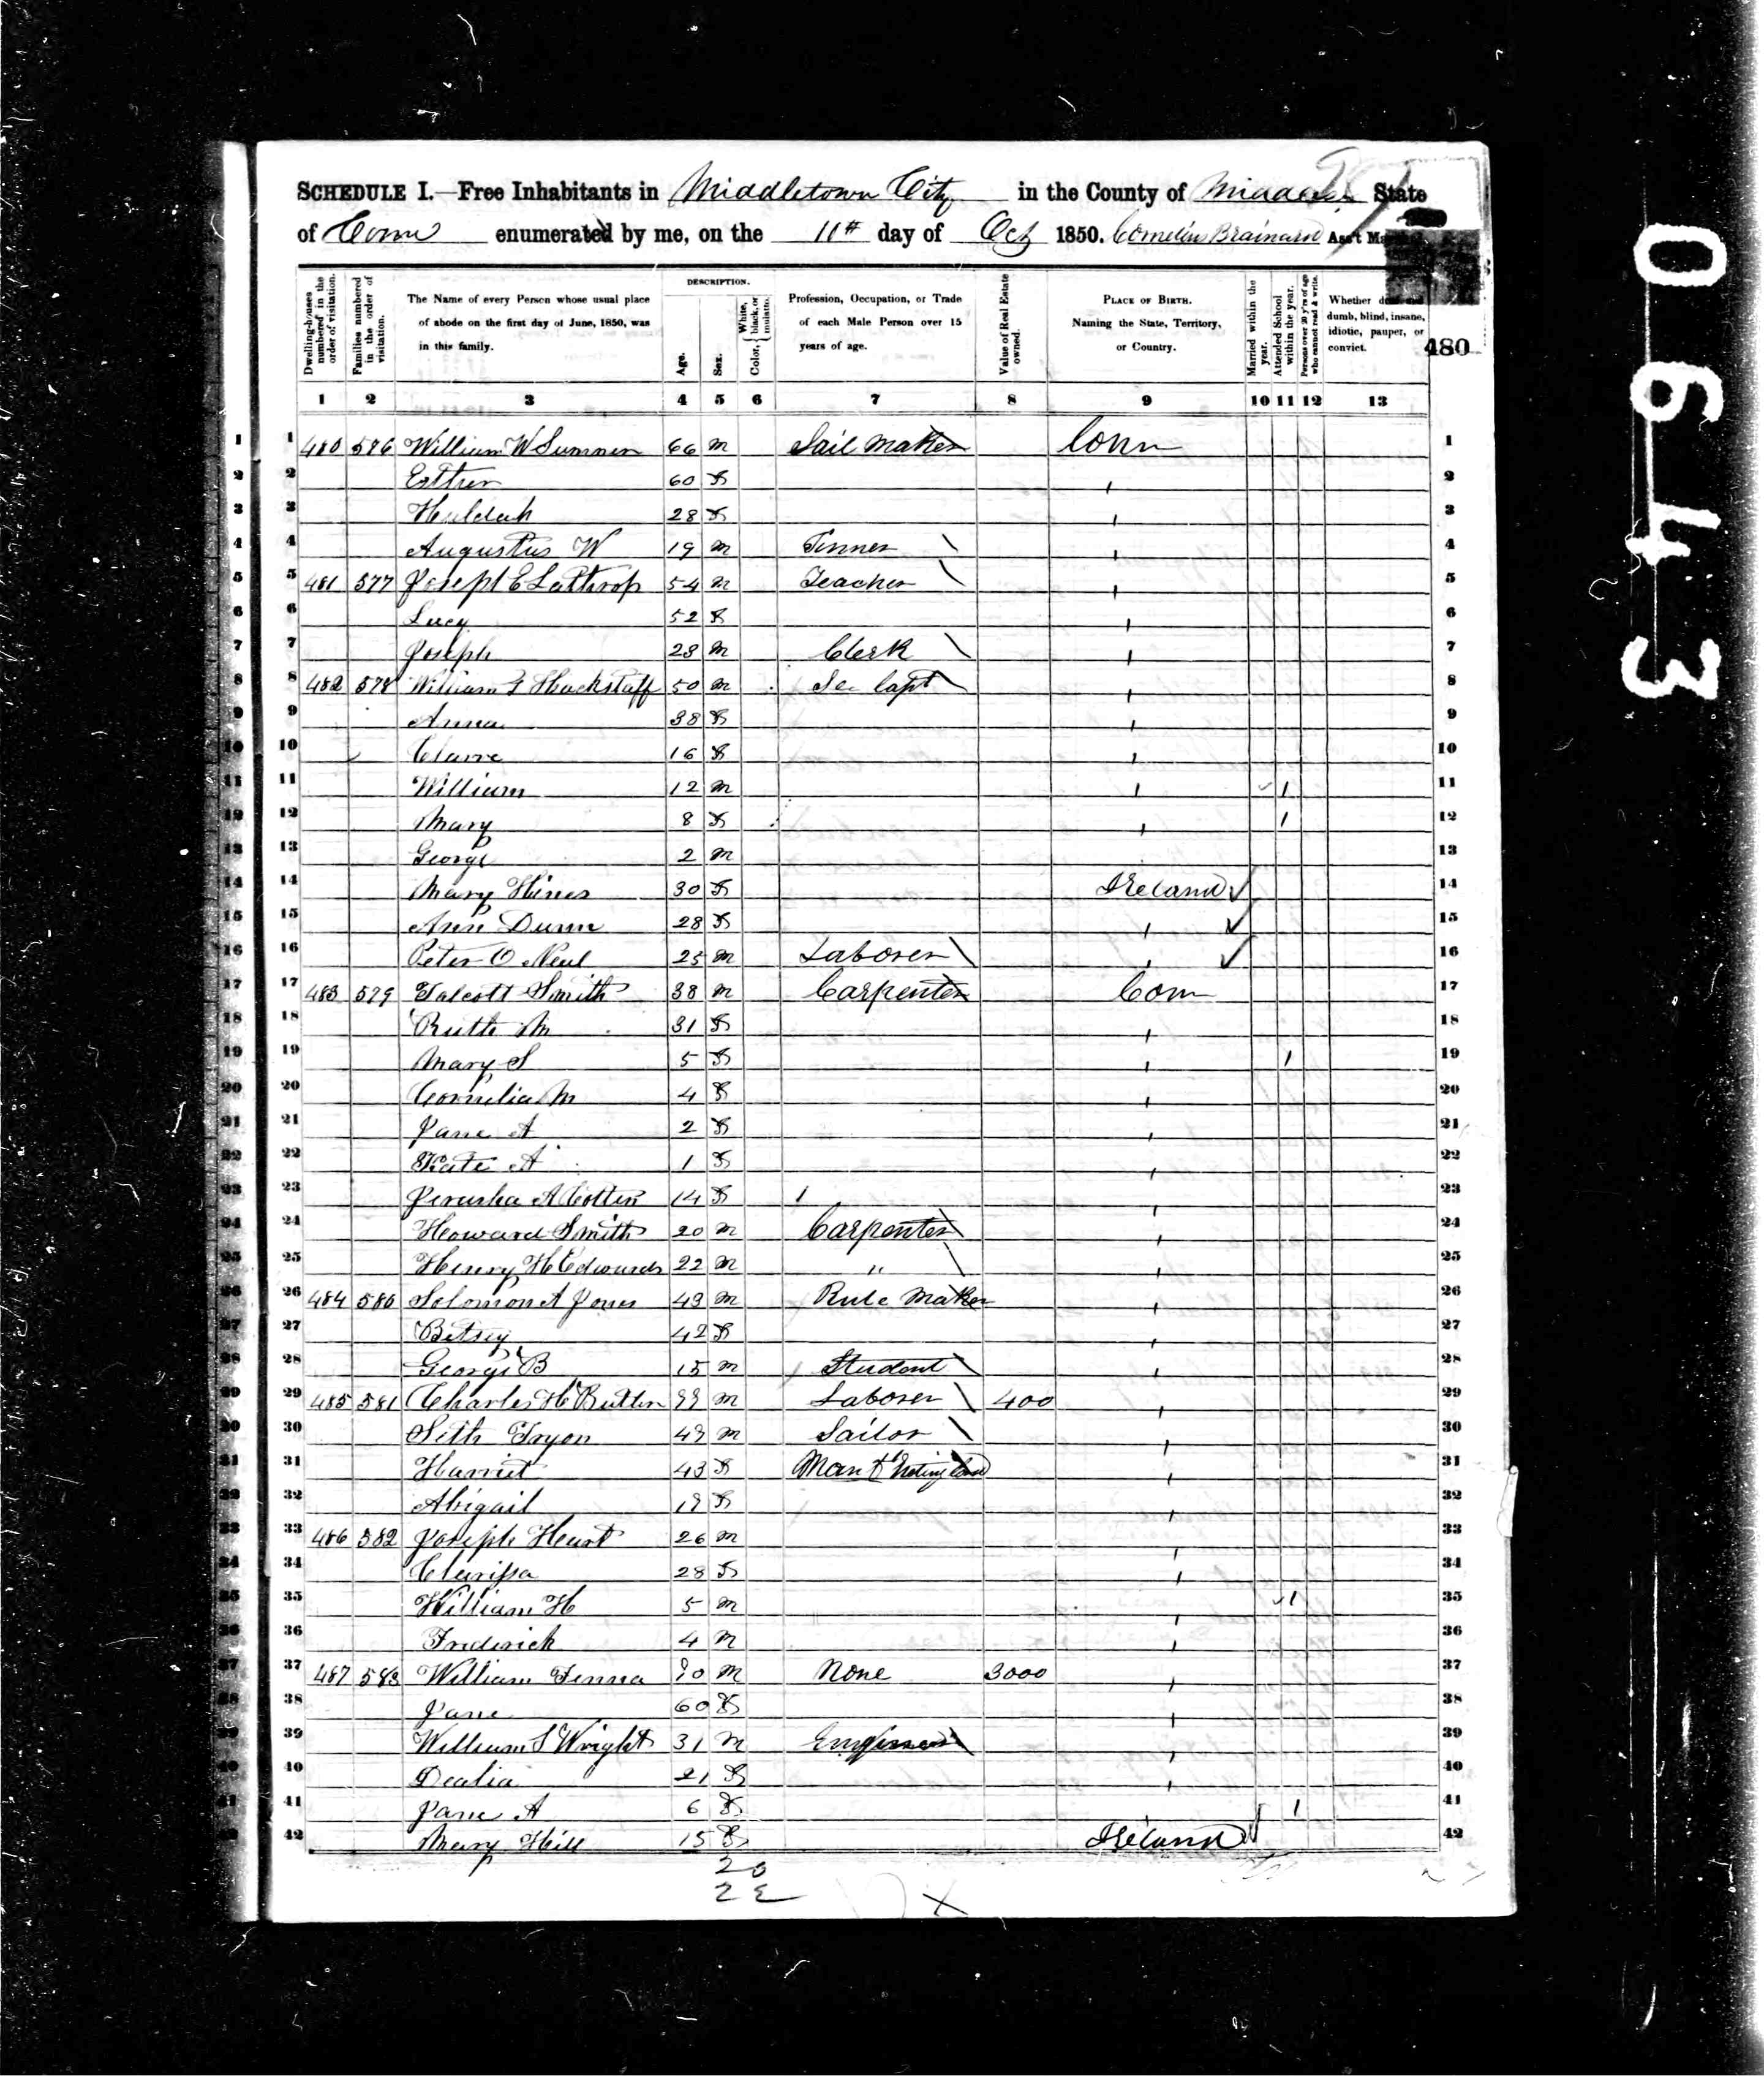 SCHEDULE I.—Free Inhabitants in Middletown City in the County of State
of Conn enumerated by me, on the 11th day of Oct 1850. Brainard Ass't
Dwelling-houses numbered in the order of visitation.
Families numbered in the order of visitation.
The Name of every Person whose usual place of abode on the first day of June, 1850, was in this family.
DESCRIPTION.
Age.
Sex.
Color, White, black, or mulatto.
Profession, Occupation, or Trade of each Male Person over 15 years of age.
Value of Real Estate owned.
PLACE OF BIRTH. Naming the State, Territory, or Country.
Married within the year.
Attended School within the year.
Persons over 20 y'rs of age who cannot read & write.
Whether deaf and dumb, blind, insane, idiotic, pauper, or convict.
480
1 2 3 4 5 6 7 8 9 10 11 12 13
1 480 576 William W Sumner 66 m Sail maker Conn 1
2 Esther 60 F 2
3 Huldah 28 F 3
4 Augustus W 19 m Tinner 4
5 481 577 Joseph E Lathrop 54 m Teacher 5
6 Lucy 52 F 6
7 Joseph 28 m Clerk 7
8 482 578 William Hackstaff 50 m Capt 8
9 Anna 38 F 9
10 16 F 10
11 William 12 m 1 11
12 Mary 8 F 1 12
13 George 2 m 13
14 Mary Hines 30 F Ireland 14
15 Ann Dunn 28 F 15
16 Peter O Neal 25 m Laborer 16
17 483 579 Talcott Smith 38 m Carpenter Conn 17
18 Ruth M 31 F 18
19 Mary S 5 F 1 19
20 Cornelia M 4 F 20
21 Jane A 2 F 21
22 Kate A 1 F 22
23 Jerusha A 14 F 23
24 Howard Smith 20 m Carpenter 24
25 Henry H Edwards 22 m " 25
26 484 580 Solomon A Jones 49 m Rule Maker 26
27 Betsey 42 F 27
28 George B 15 m Student 28
29 485 581 Charles H m Laborer 400 29
30 Seth Tryon 49 m Sailor 30
31 Harriet 43 F 31
32 Abigail F 32
33 486 582 Joseph Heart 26 m 33
34 Clarissa 28 F 34
35 William H 5 m 1 35
36 Frederick 4 m 36
37 487 583 William m None 3000 37
38 Jane 60 F 38
39 William S Wright 31 m Engineer 39
40 Dealia 21 F 40
41 Jane A 6 F 1 41
42 Mary Hill 15 F Ireland 42
20
0643